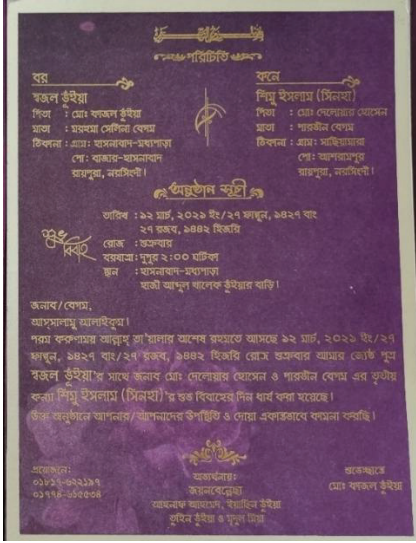 পরিচিতি
বর
স্বজল ভূঁইয়া
পিতা : মোঃ ফজল ভূঁইয়া
মাতা : মরহুমা সেলিনা বেগম
ঠিকানা : গ্রাম: হাসনাবাদ-মধ্যপাড়া
পো: বাজার-হাসনাবাদ
রায়পুরা, নরসিংদী।
কনে
শিমু ইসলাম (সিনহা)
পিতা : মোঃ দেলোয়ার হোসেন
মাতা : পারভীন বেগম
ঠিকানা : গ্রাম:
পো: আশরামপুর
রায়পুরা, নরসিংদী।
অনুষ্ঠান সূচী
শুভ বিবাহ
তারিখ : ১২ মার্চ, ২০২১ ইং/২৭ ফাল্গুন, ১৪২৭ বাং
২৭ রজব, ১৪৪২ হিজরি
রোজ : শুক্রবার
বরযাত্রা : দুপুর ২:০০ ঘটিকা
স্থান : হাসনাবাদ-মধ্যপাড়া
হাজী আব্দুল খালেক ভূঁইয়ার বাড়ি।
জনাব/বেগম,
আস্সালামু আলাইকুম।
পরম করুণাময় আল্লাহ্ তা'য়ালার অশেষ রহমতে আসছে ১২ মার্চ, ২০২১ ইং/২৭
ফাল্গুন, ১৪২৭ বাং/২৭ রজব, ১৪৪২ হিজরি রোজ শুক্রবার আমার জ্যেষ্ঠ পুত্র
স্বজল ভূঁইয়া'র সাথে জনাব মোঃ দেলোয়ার হোসেন ও পারভীন বেগম এর তৃতীয়
কন্যা শিমু ইসলাম (সিনহা)'র শুভ বিবাহের দিন ধার্য করা হয়েছে।
উক্ত অনুষ্ঠানে আপনার/আপনাদের উপস্থিতি ও দোয়া একান্তভাবে কামনা করছি।
প্রয়োজনে:
০১৮১৭-৬২২১৯৭
অভ্যর্থনায়:
জয়নবুন্নেছা
আহনাফ আহমেদ, ইয়াছিন ভূঁইয়া
তুহিন ভূঁইয়া ও মৃদুল মিয়া
শুভেচ্ছান্তে
মোঃ ফজল ভূঁইয়া